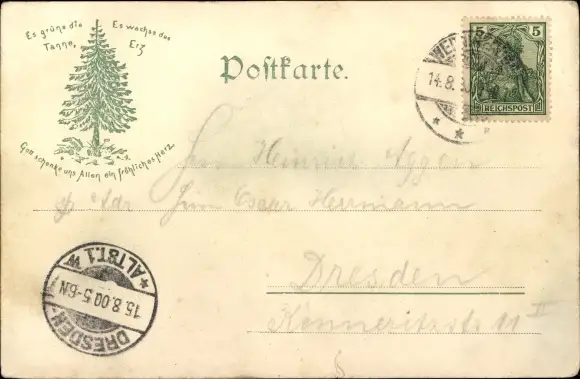 Es grüne die Tanne,
Es wachse das Erz
Gott schenke uns Allen ein fröhliches Herz
Postkarte.
5
REICHSPOST
14.8.
Herrn Heinrich
p Adr Herrn Oscar Herrmann
Dresden
Konneritzstr 11 II
DRESDEN-ALTST.1 W
15.8.00.5-6N